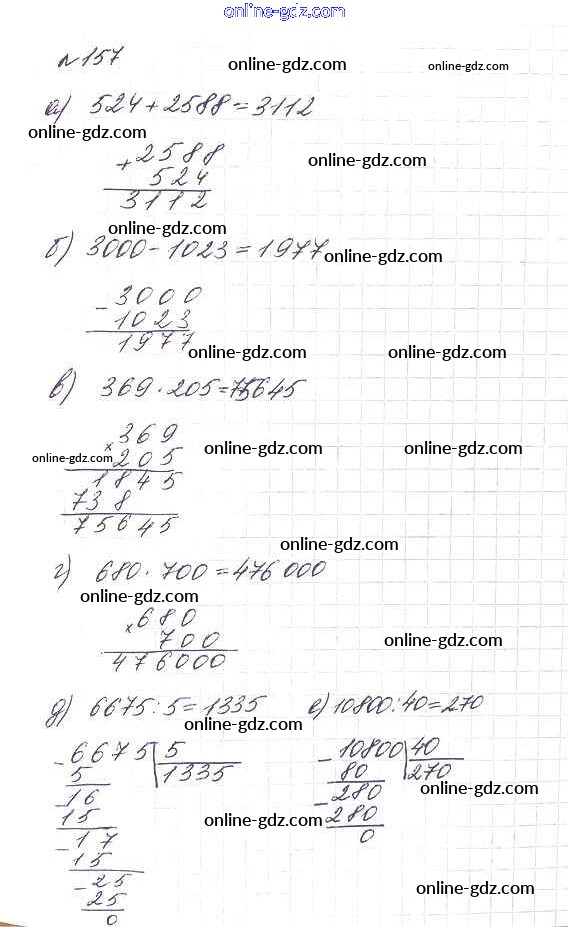 online-gdz.com
№157
online-gdz.com online-gdz.com
а) 524 + 2588 = 3112
online-gdz.com
+ 2588 online-gdz.com
524
3112
online-gdz.com
б) 3000 - 1023 = 1977 online-gdz.com
- 3000
1023
1977
online-gdz.com online-gdz.com
в) 369 · 205 = 75645
× 369
online-gdz.com 205 online-gdz.com online-gdz.com
1845
738
75645
online-gdz.com
г) 680 · 700 = 476000
online-gdz.com
× 680
700 online-gdz.com
476000
д) 6675 : 5 = 1335 е) 10800 : 40 = 270
online-gdz.com
- 6675 5 - 10800 40
5 1335 80 270
- 16 - 280 online-gdz.com
15 280
online-gdz.com 0
- 17
15
- 25 online-gdz.com
25
0